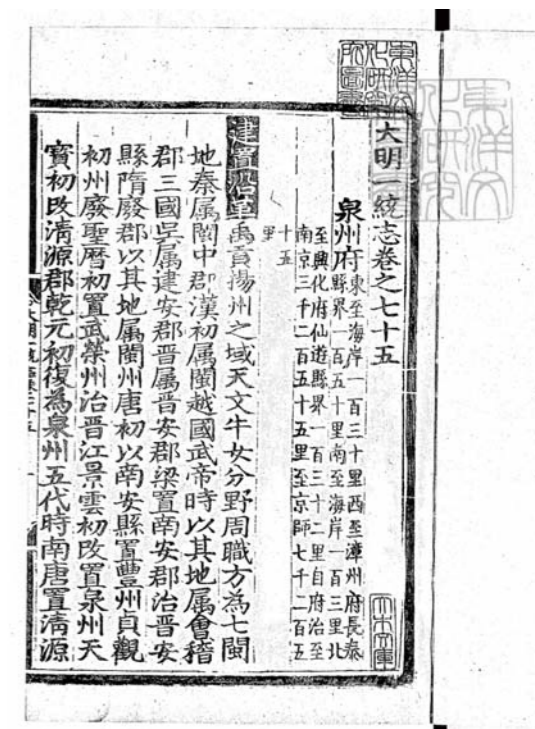 東洋文
化研究
所圖書
東洋文
化研究
大明一統志卷之七十五
大木文庫
泉州府
東至海岸一百三十里西至漳州府長泰
縣界一百五十里南至海岸一百三里北
至興化府仙遊縣界一百三十二里自府治至
南京三千二百五十五里至京師七千二百五
十五
里
建置沿革禹貢揚州之域天文牛女分野周職方為七閩
地秦屬閩中郡漢初屬閩越國武帝時以其地屬會稽
郡三國吳屬建安郡晉屬晉安郡梁置南安郡治晉安
縣隋廢郡以其地屬閩州唐初以南安縣置豐州貞觀
初州廢聖曆初置武榮州治晉江景雲初改置泉州天
寶初改清源郡乾元初復為泉州五代時南唐置清源